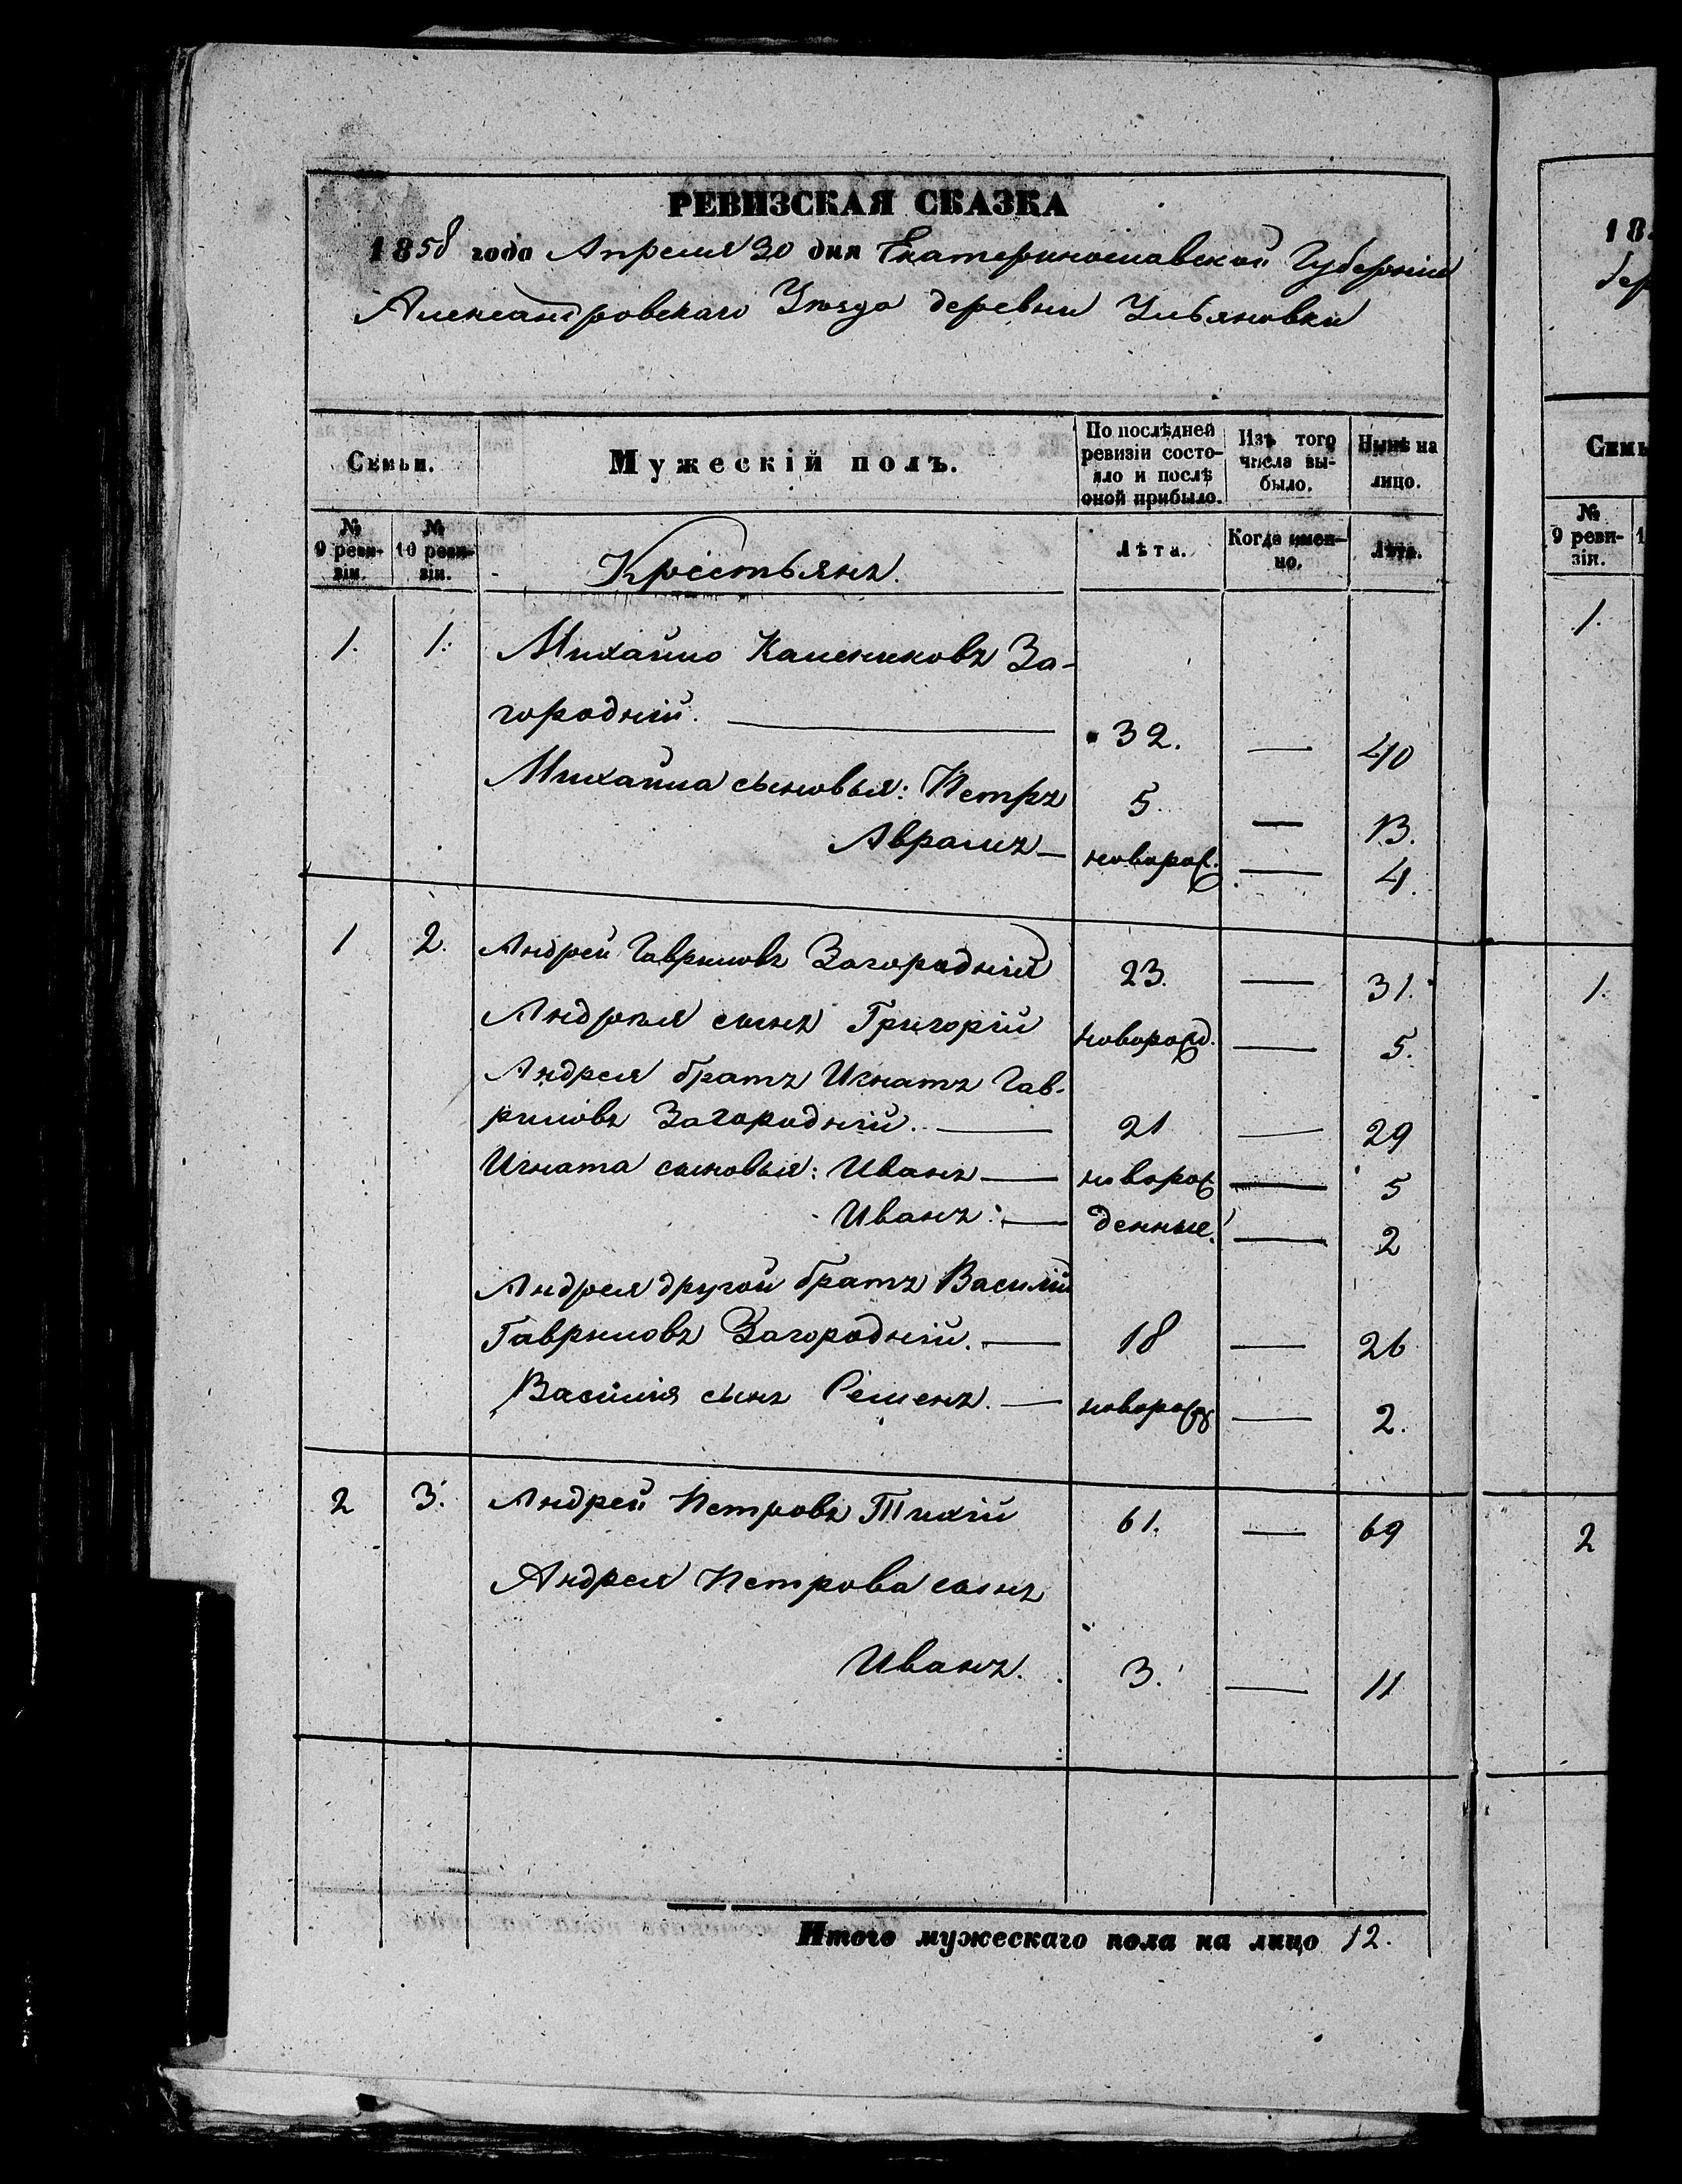 РЕВИЗСКАЯ СКАЗКА
1858 года Апреля 30 дня Екатеринославской Губернiи
Александровскаго Уѣзда деревни Ульяновки
Семьи.
Мужескiй полъ.
По послѣдней ревизiи состо-
яло и послѣ оной прибыло.
Изъ того числа вы-
было.
Нынѣ на лицо.
№ 9 реви-
зiи.
№ 10 реви-
зiи.
Крестьянъ.
Лѣта.
Когда имен-
но.
Лѣта.
1. 1. Михайло Калениковъ За-
городнiй. — 32. — 40
Михайла сыновья: Петръ 5. — 13.
Аврамъ — новорож. — 4.
1 2. Андрей Гавриловъ Загороднiй 23. — 31.
Андрея сынъ Григорiй новорожд. — 5.
Андрея братъ Игнатъ Гав-
риловъ Загороднiй. — 21 — 29
Игната сыновья: Иванъ — новорож — 5
Иванъ: — денные. — 2
Андрея другой братъ Василiй
Гавриловъ Загороднiй. — 18 — 26
Василiя сынъ Семенъ. — новорожд — 2.
2 3. Андрей Петровъ Тихiй 61. — 69
Андрея Петрова сынъ
Иванъ. 3. — 11
Итого мужескаго пола на лицо 12.
18
Семь
№ 9 реви-
зiи.
1
1.
1.
2